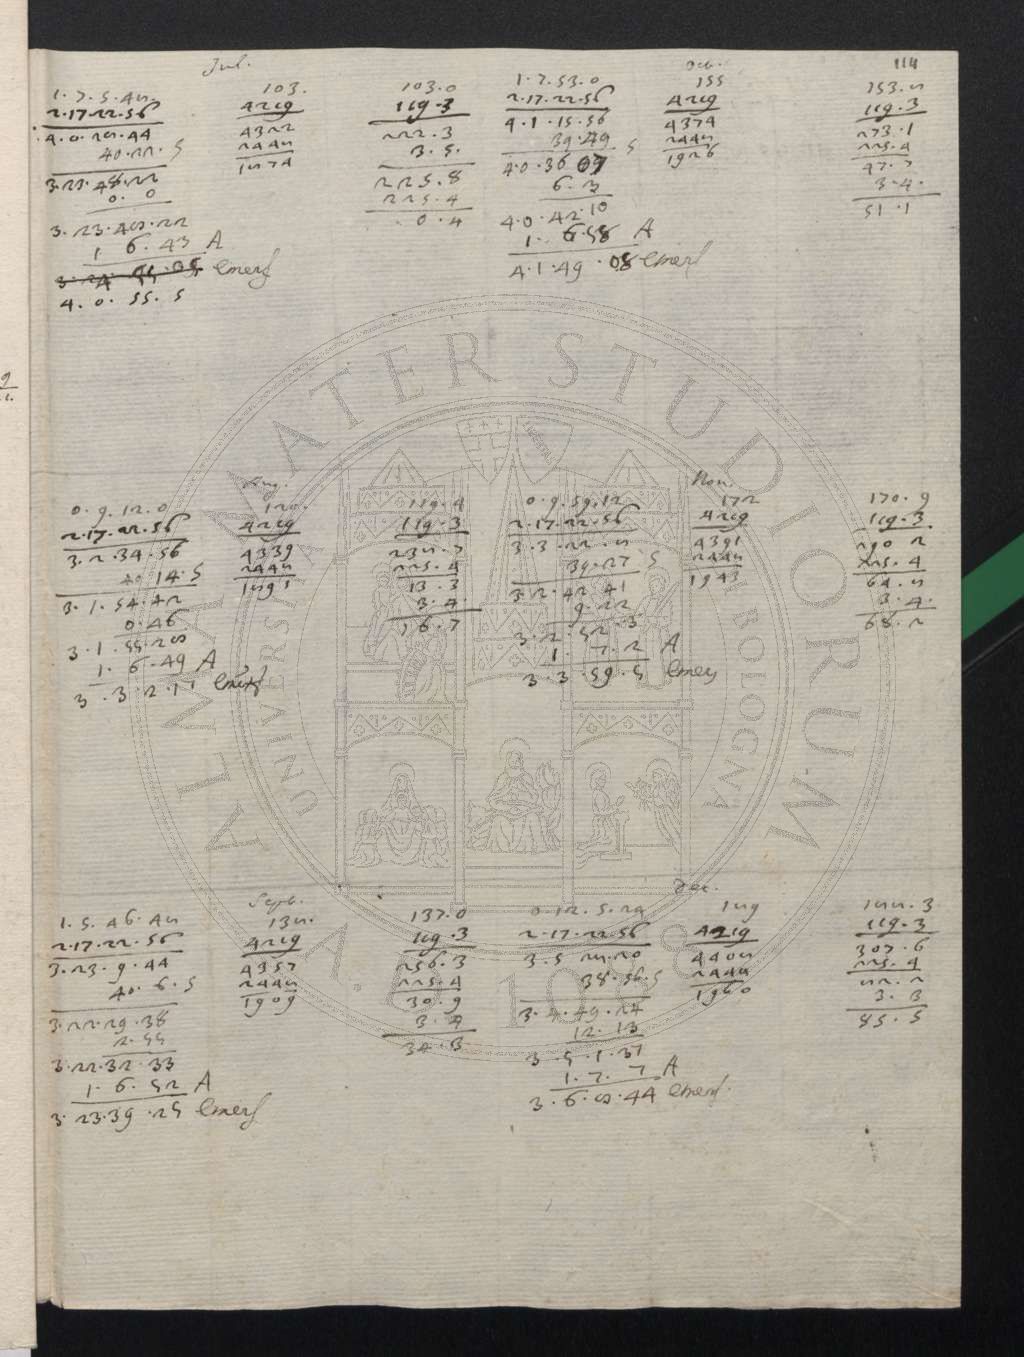 114
Jul.
1. 7. 5. 48
2. 17. 22. 56
4. 0. 28. 44
40. 22. S
3. 23. 48. 22
0. 0
3. 23. 48. 22
1 6. 43 A
3. 24. 55. 05 emers
4. 0. 55. 5
103.
4219
4322
2448
1874
103. 0
119. 3
222. 3
3. 5.
225. 8
225. 4
0. 4
Oct.
1. 7. 53. 0
2. 17. 22. 56
4. 1. 15. 56
39. 49 S
4. 0. 36 07
6. 3
4. 0. 42. 10
1. 6. 58 A
4. 1. 49. 08 emers
155
4219
4374
2448
1926
153. 8
119. 3
273. 1
225. 4
47. 7
3. 4.
51. 1
Aug.
0. 9. 12. 0
2. 17. 22. 56
3. 2. 34. 56
40 14. S
3. 1. 54. 42
0. 46
3. 1. 55. 28
1. 6. 49 A
3. 3. 2. 17 emers
120.
4219
4339
2448
1891
119. 4
119. 3
238. 7
225. 4
13. 3
3. 4.
16. 7
Nov.
0. 9. 59. 12
2. 17. 22. 56
3. 3. 22. 8
39. 27 S
3. 2. 42. 41
9. 22
3. 2. 52. 3
1. 7. 2 A
3. 3. 59. 5 emers
172
4219
4391
2448
1943
170. 9
119. 3
290. 2
225. 4
64. 8
3. 4.
68. 2
Sept.
1. 5. 46. 48
2. 17. 22. 56
3. 23. 9. 44
40. 6. S
3. 22. 29. 38
2. 55
3. 22. 32. 33
1. 6. 52 A
3. 23. 39. 25 emers
138.
4219
4357
2448
1909
137. 0
119. 3
256. 3
225. 4
30. 9
3. 4
34. 3
Dec.
0. 12. 5. 24
2. 17. 22. 56
3. 5 28. 20
38. 56. S
3. 4. 49. 24
12. 13
3. 5. 1. 37
1. 7. 7 A
3. 6. 8. 44 emers.
189
4219
4408
2448
1960
188. 3
119. 3
307. 6
225. 4
82. 2
3. 3
85. 5
ALMA MATER STUDIORUM
A.D. 1088
UNIVERSITÀ DI BOLOGNA